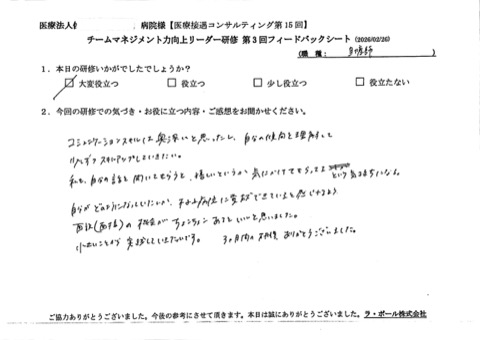 医療法人 病院様【医療接遇コンサルティング第15回】
チームマネジメント力向上リーダー研修 第3回フィードバックシート (2026/02/26)
(職種: 看護師 )
1．本日の研修いかがでしたでしょうか？
□ 大変役立つ □ 役立つ □ 少し役立つ □ 役立たない
2．今回の研修での気づき・お役に立つ内容・ご感想をお聞かせください。
コミュニケーションスキルは奥深いと思ったし、自分の傾向を理解して
少しずつスキルアップしていきたい。
私も、自分の話を聞いてもらうと、嬉しいというか気にかけてもらってるという気持ちになる。
自分がどのようになりたいか、
面談(面接)の機会がちょこちょこあるといいと思いました。
小さいことから実践していきたいです。 3ヶ月間の研修 ありがとうございました。
ご協力ありがとうございました。今後の参考にさせて頂きます。本日は誠にありがとうございました。ラ・ポール株式会社